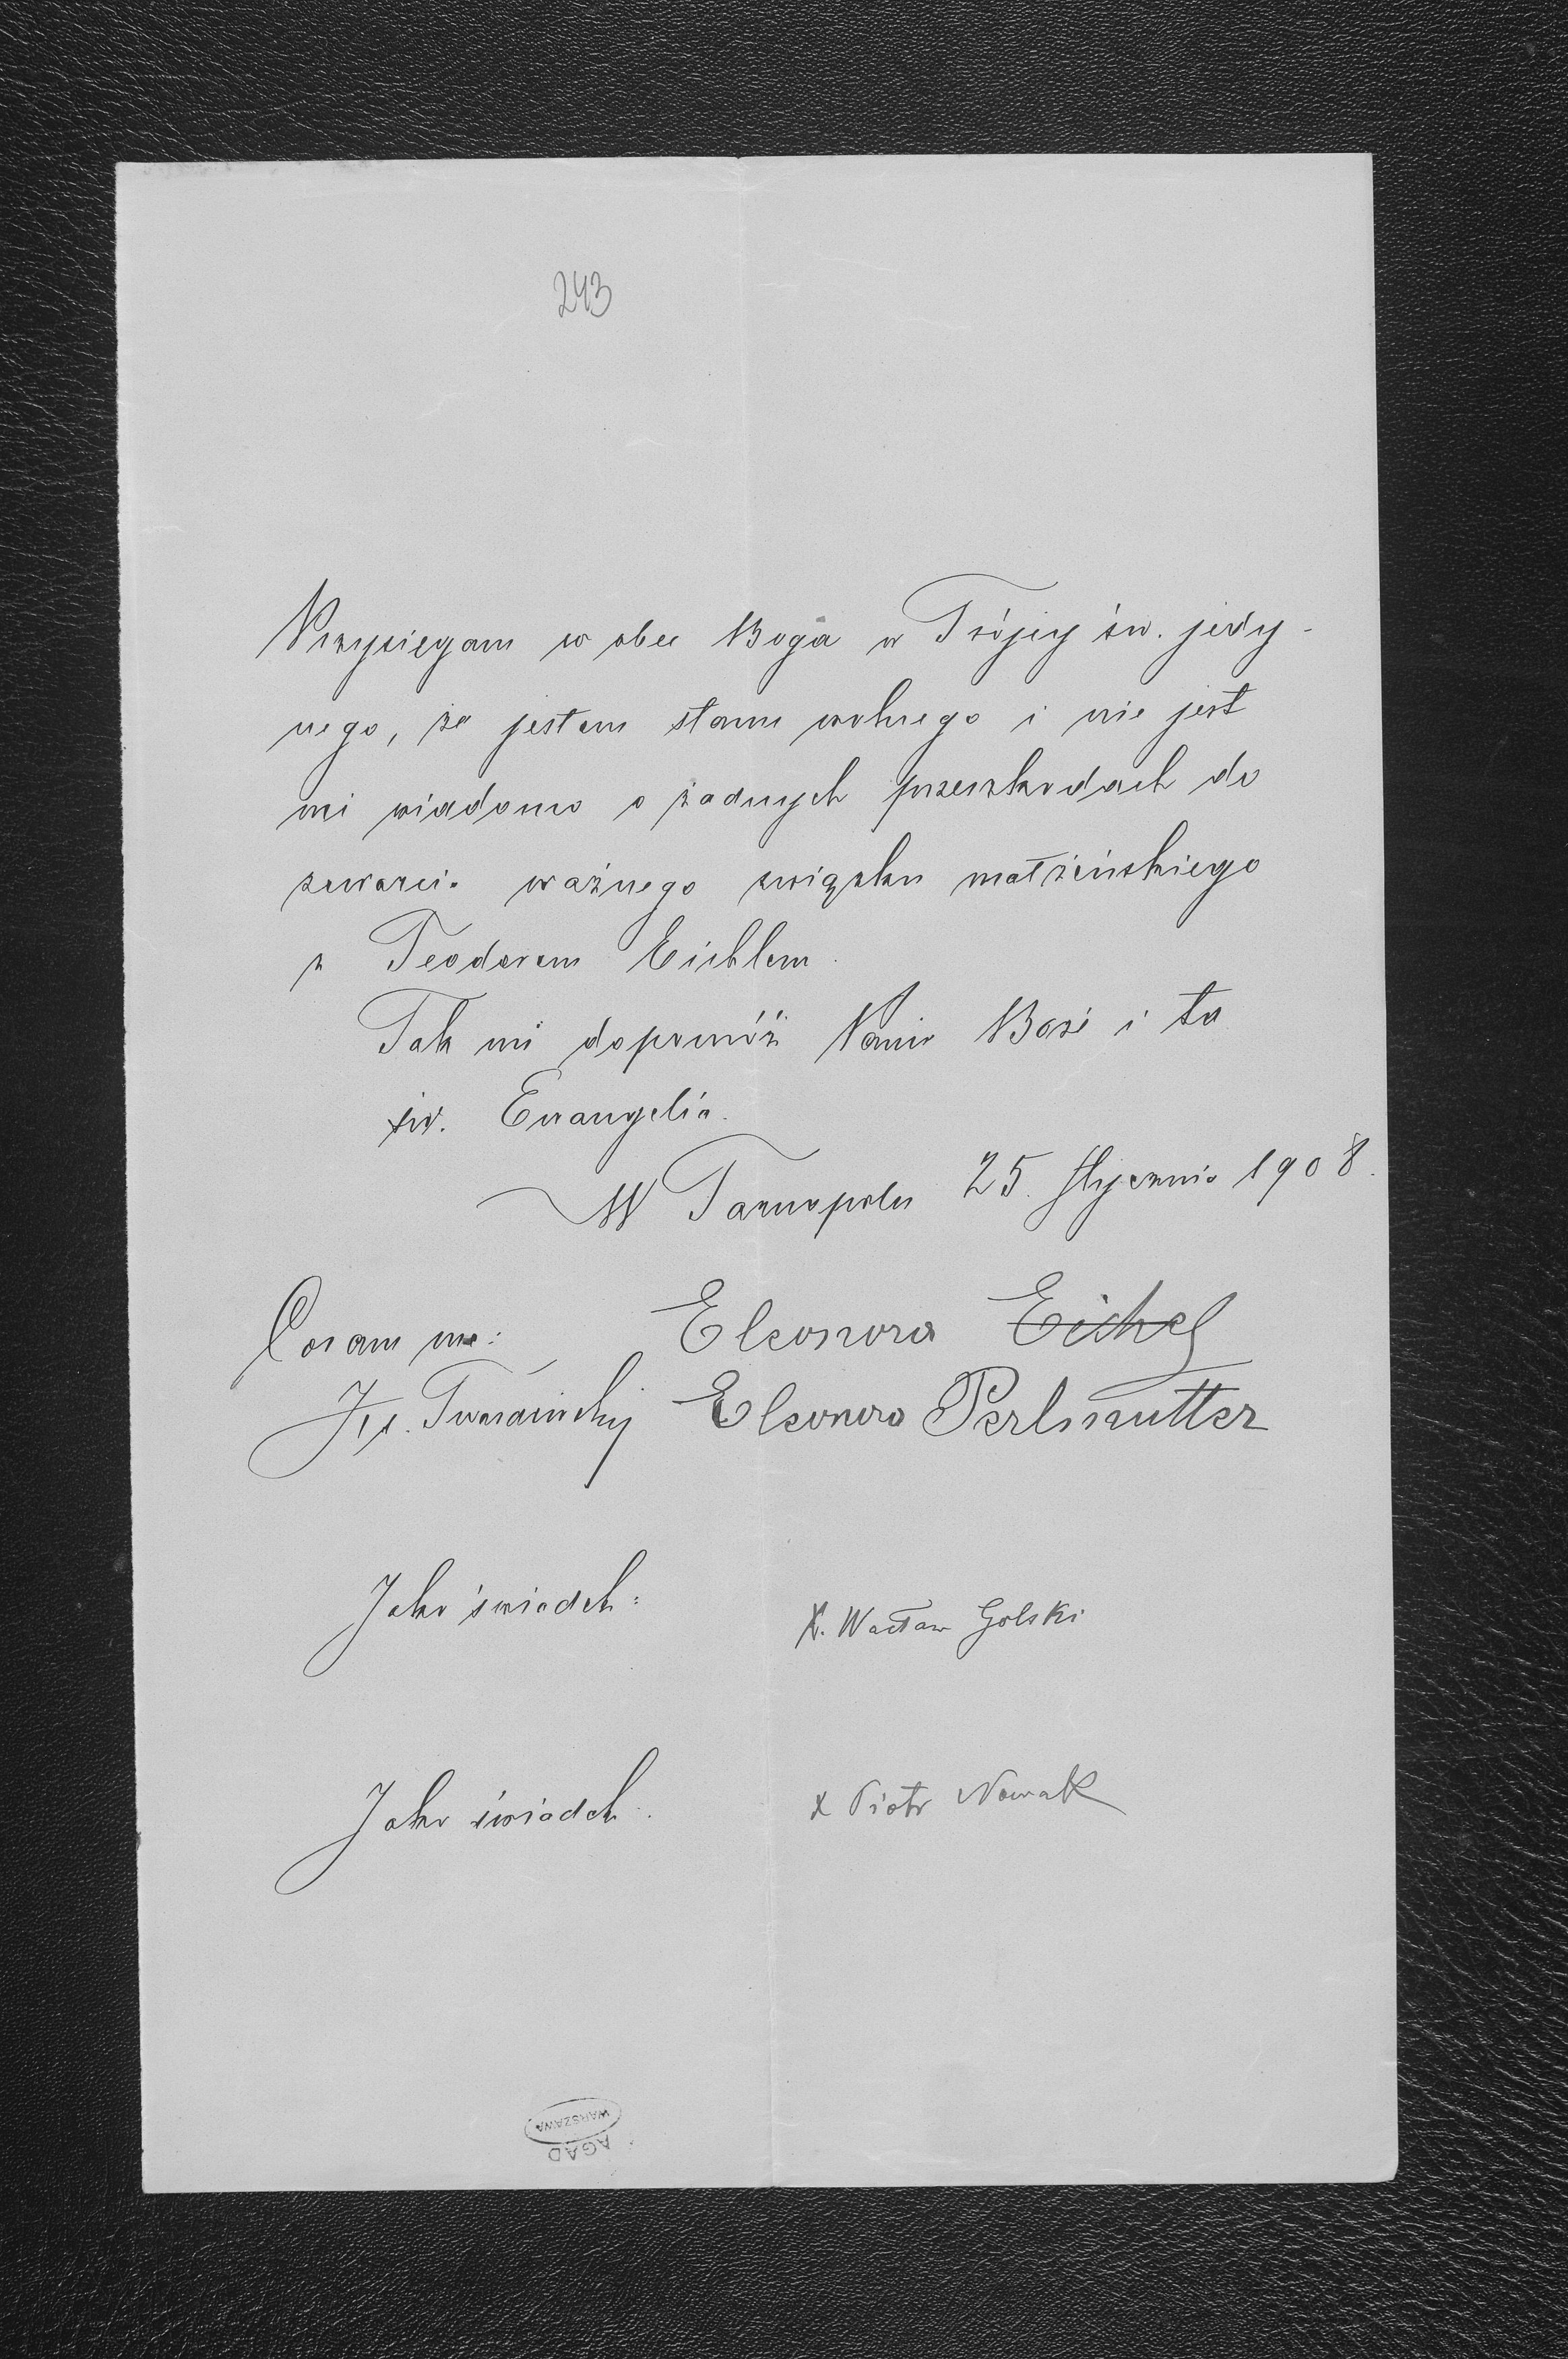 243
Przysięgam w obec Boga w Trójcy św. jedy-
nego, że jestem stanu wolnego i nie jest
mi wiadomo o żadnych przeszkodach do
zawarcia ważnego związku małżeńskiego
z Teodorem Eichlem.
Tak mi dopomóż Panie Boże i ta
św. Ewangelia.
W Tarnopolu 25. stycznia 1908.
Coram me: Eleonora Eichel
Twardowski Eleonora Perlmutter
Jako świadek: X. Wacław Golski
Jako świadek: X Piotr Nowak
WARSZAWA
AGAD